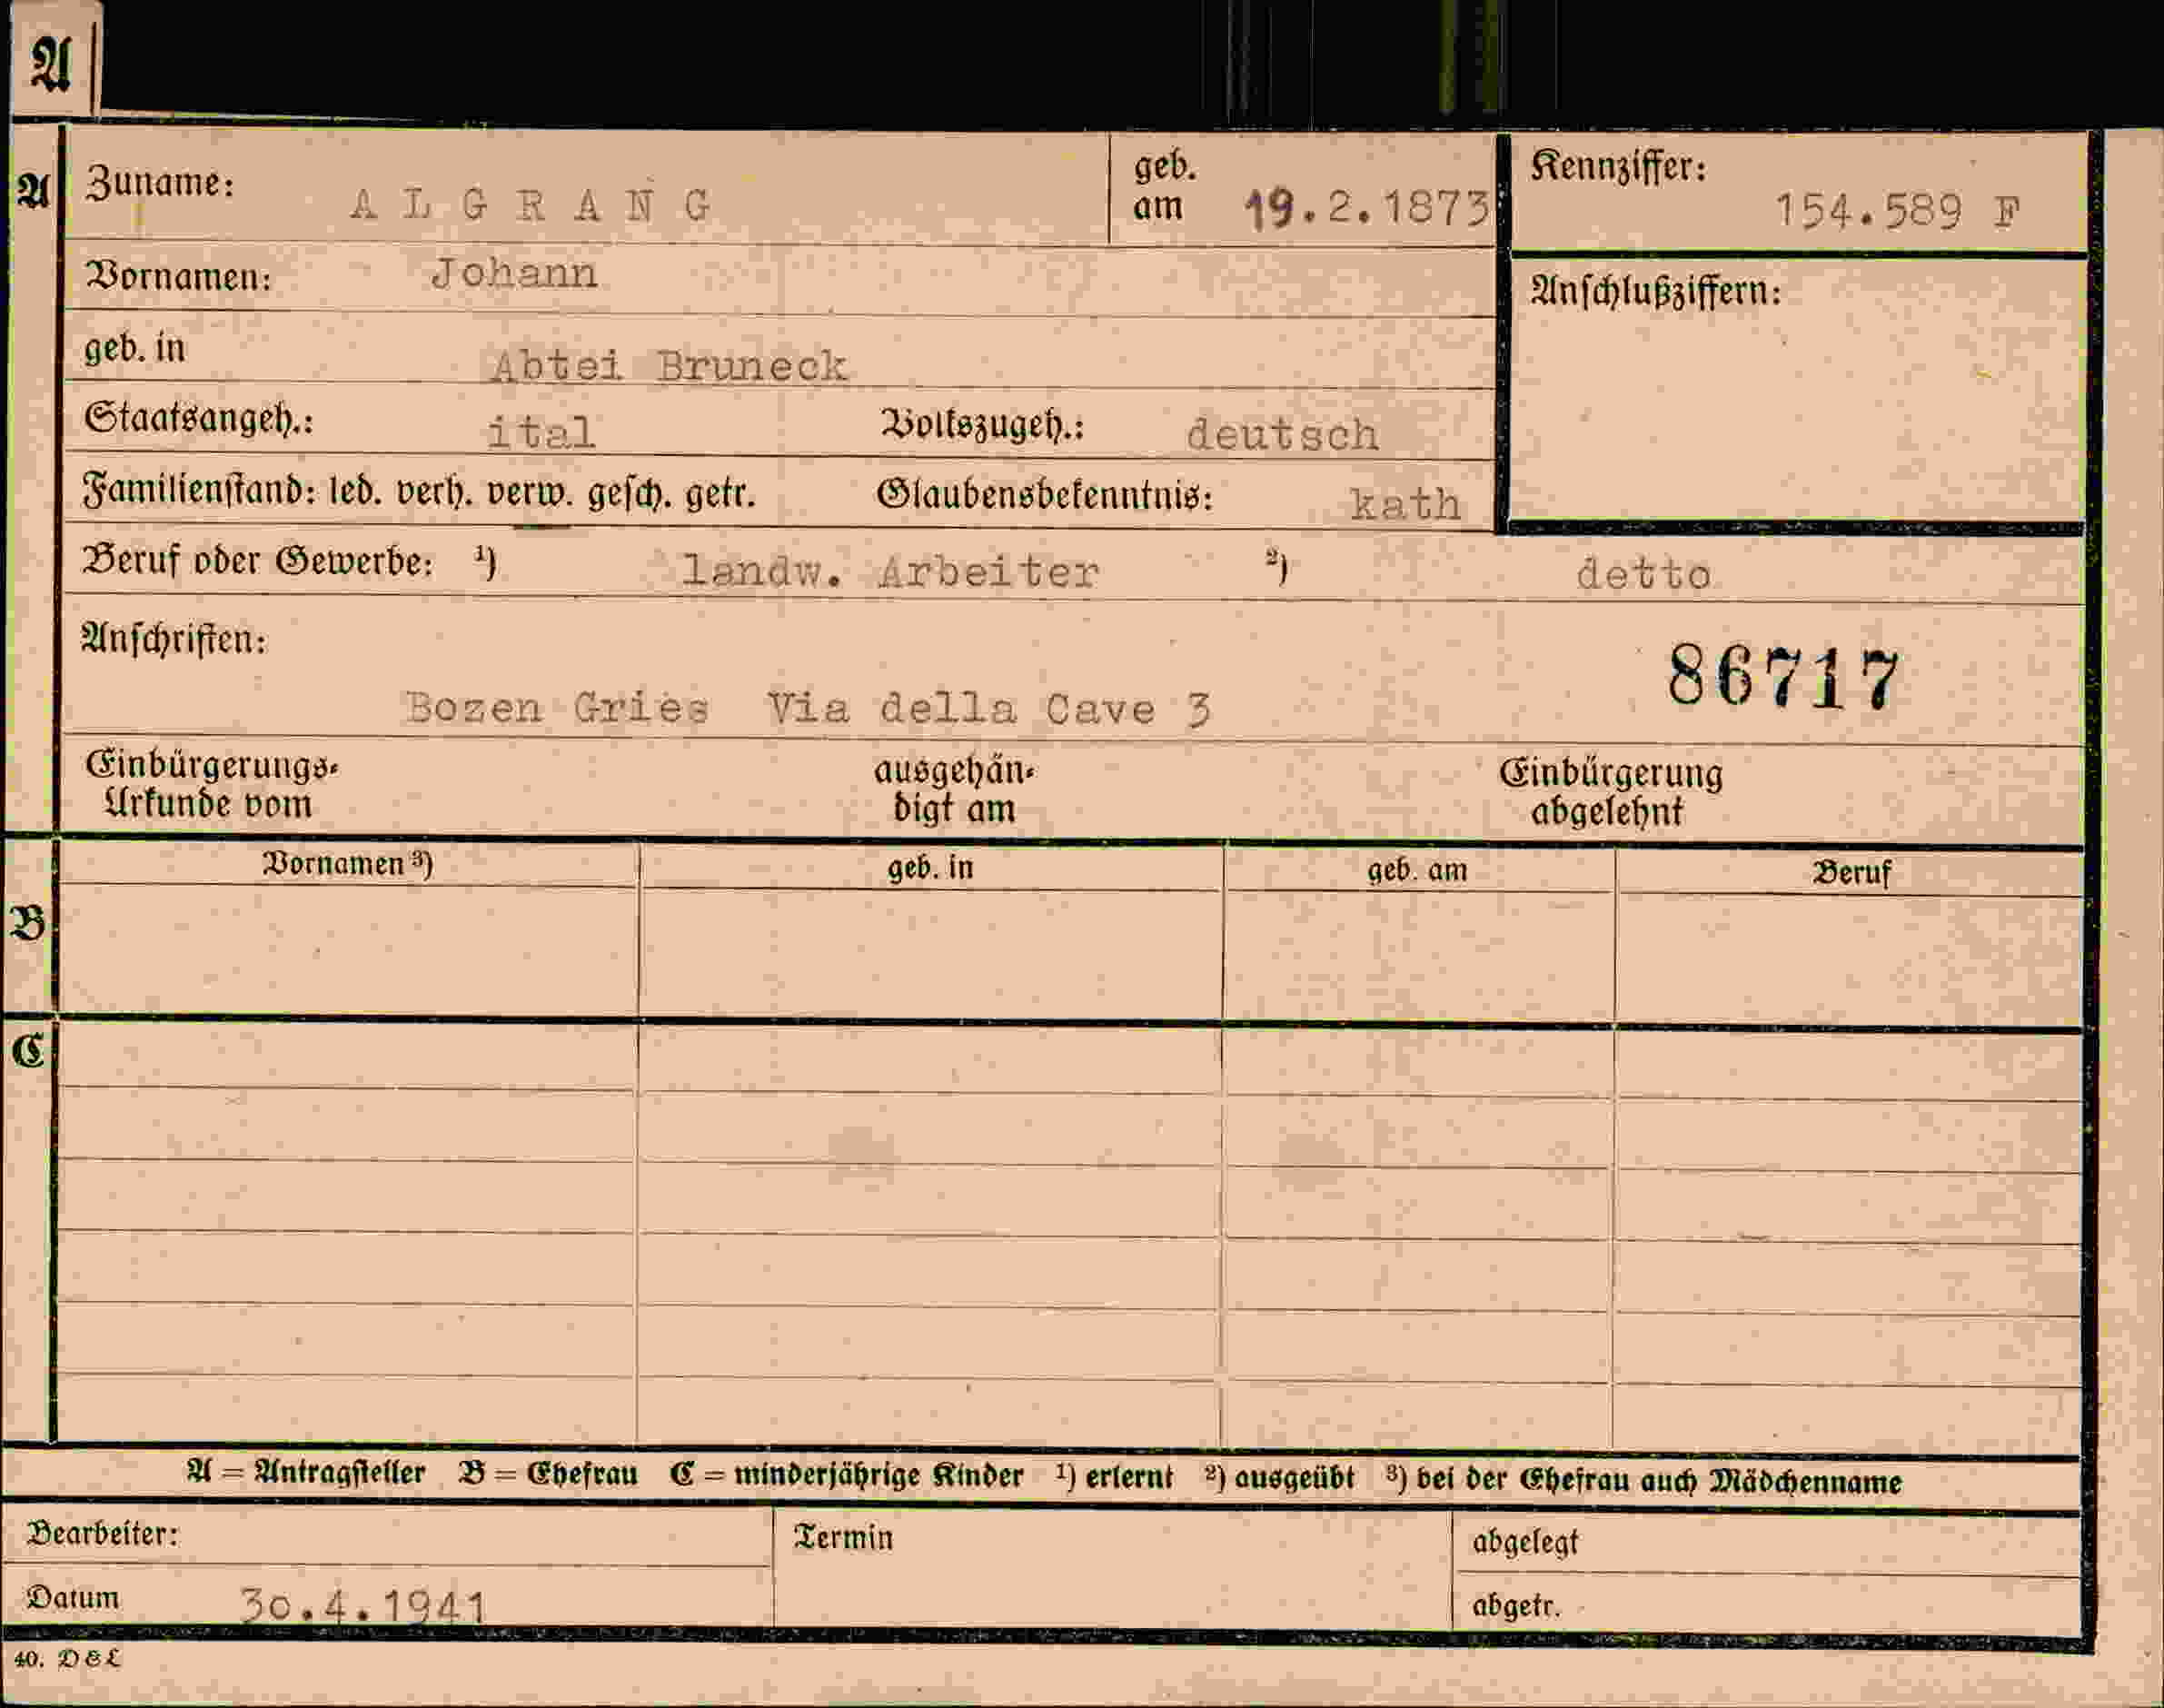 A
A Zuname: ALGRANG geb. am 19.2.1873 Kennziffer: 154.589 F
Vornamen: Johann Anschlußziffern:
geb. in Abtei Bruneck
Staatsangeh.: ital Volkszugeh.: deutsch
Familienstand: led. verh. verw. gesch. getr. Glaubensbekenntnis: kath
Beruf oder Gewerbe: ¹) landw. Arbeiter ²) detto
Anschriften:
86717
Bozen Gries Via della Cave 3
Einbürgerungs- ausgehän- Einbürgerung
Urkunde vom digt am abgelehnt
Vornamen ³) geb. in geb. am Beruf
B
C
A = Antragsteller B = Ehefrau C = minderjährige Kinder ¹) erlernt ²) ausgeübt ³) bei der Ehefrau auch Mädchenname
Bearbeiter: Termin abgelegt
Datum 30.4.1941 abgetr.
40. DEL